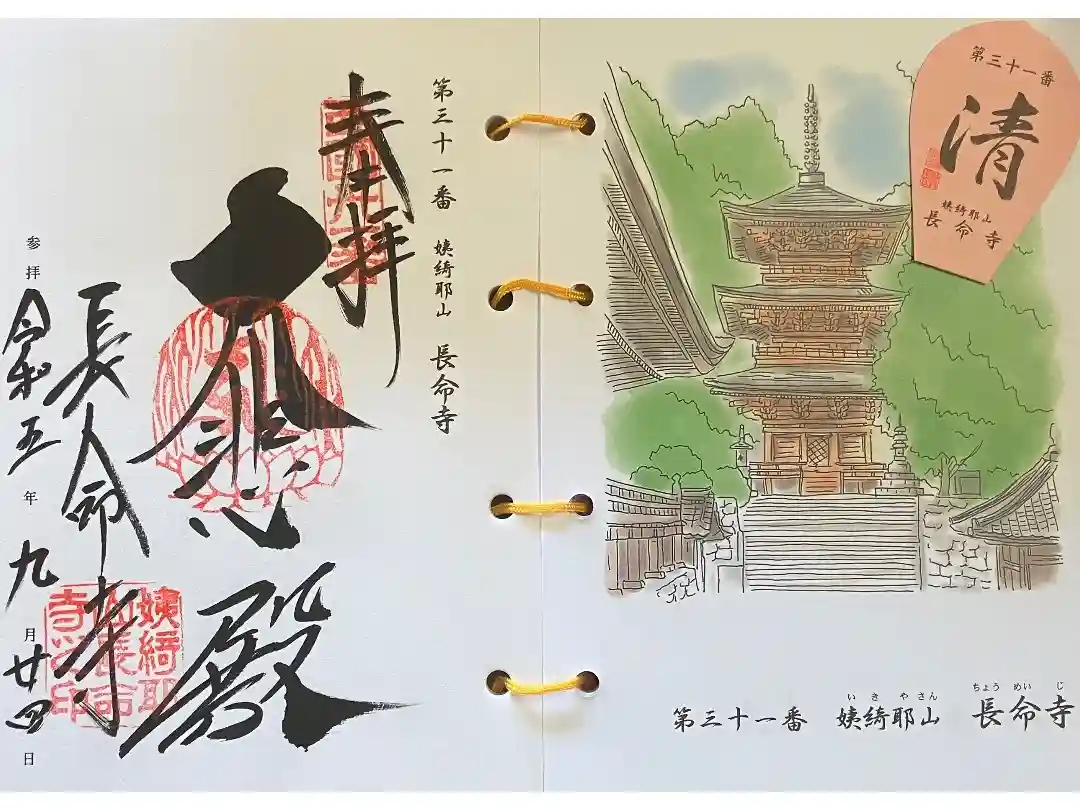 第三十一番　姨綺耶山　長命寺
奉拝
大悲殿
長命寺
参拝 令和五年 九月廿四日
姨綺耶
山長命
寺之印
第三十一番
清
姨綺耶山
長命寺
い き や さん　ちょう めい じ
第三十一番　姨綺耶山　長命寺